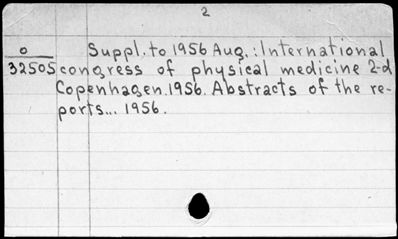 2
o Suppl. to 1956 Aug.: International
32505 congress of physical medicine 2-d
Copenhagen. 1956. Abstracts of the re-
ports... 1956.